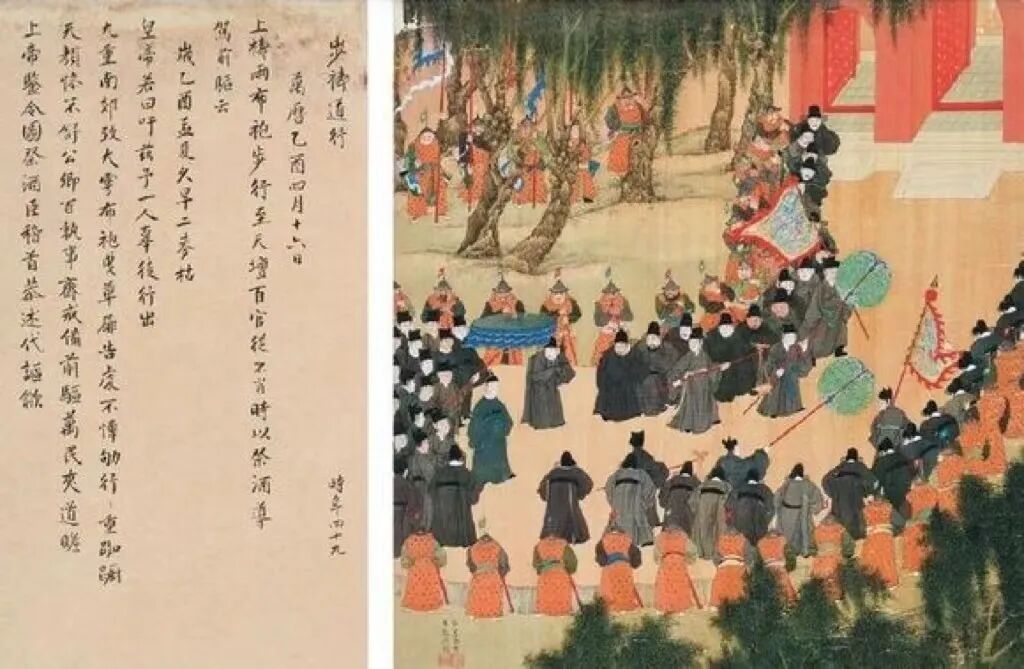 步禱道行
時年四十九
萬曆乙酉四月十六日
上禱雨布袍步行至天壇百官從不肖時以祭酒導
駕前驅云
歲乙酉孟夏大旱二麥枯
皇帝若曰吁茲予一人辜徒行出
九重南郊致大雩布袍曳草屨告虔不憚劬行〻重跼躅
天顏慘不舒公卿百執事齋戒備前驅萬民夾道瞻
上帝鑒令圖祭酒臣稽首恭述代謳歈